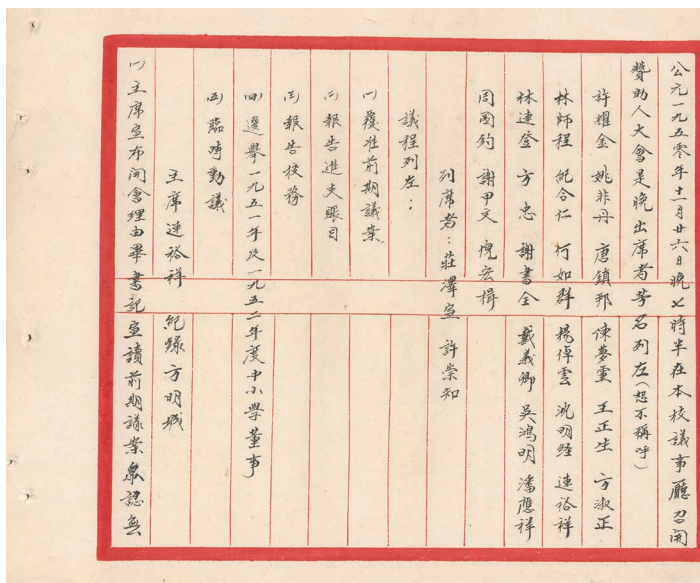 公元一九五零年十一月廿六日晚七時半在本校議事廳召開
贊助人大會是晚出席者芳名列左(恕不稱呼)
許耀金 姚非丹 唐鎮邦 陳夢靈 王正生 方淑正
林師程 紀合仁 何如群 楊倬雲 沈明經 連裕祥
林連登 方忠 謝書全 戴義卿 吳鴻明 潘應祥
周國鈞 謝甲文 倪宏楫
列席者:莊澤宣 許崇知
議程列左:
(一)覆准前期議案
(二)報告進支賬目
(三)報告校務
(四)選舉一九五一年及一九五二年度中小學董事
(五)臨時動議
主席連裕祥 紀錄方明城
(一)主席宣布開會理由畢書記宣讀前期議案衆認無